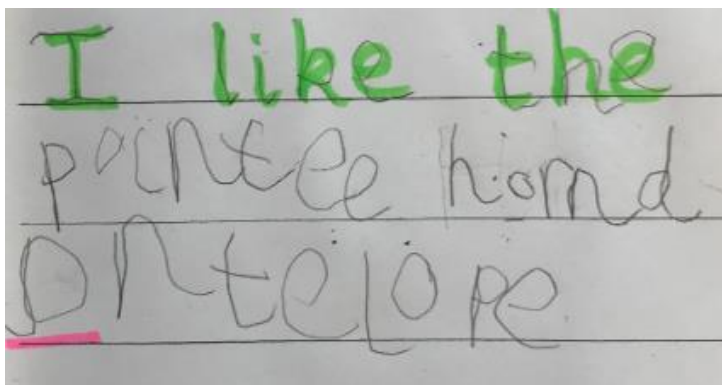 I like the
pointee homd
antelope